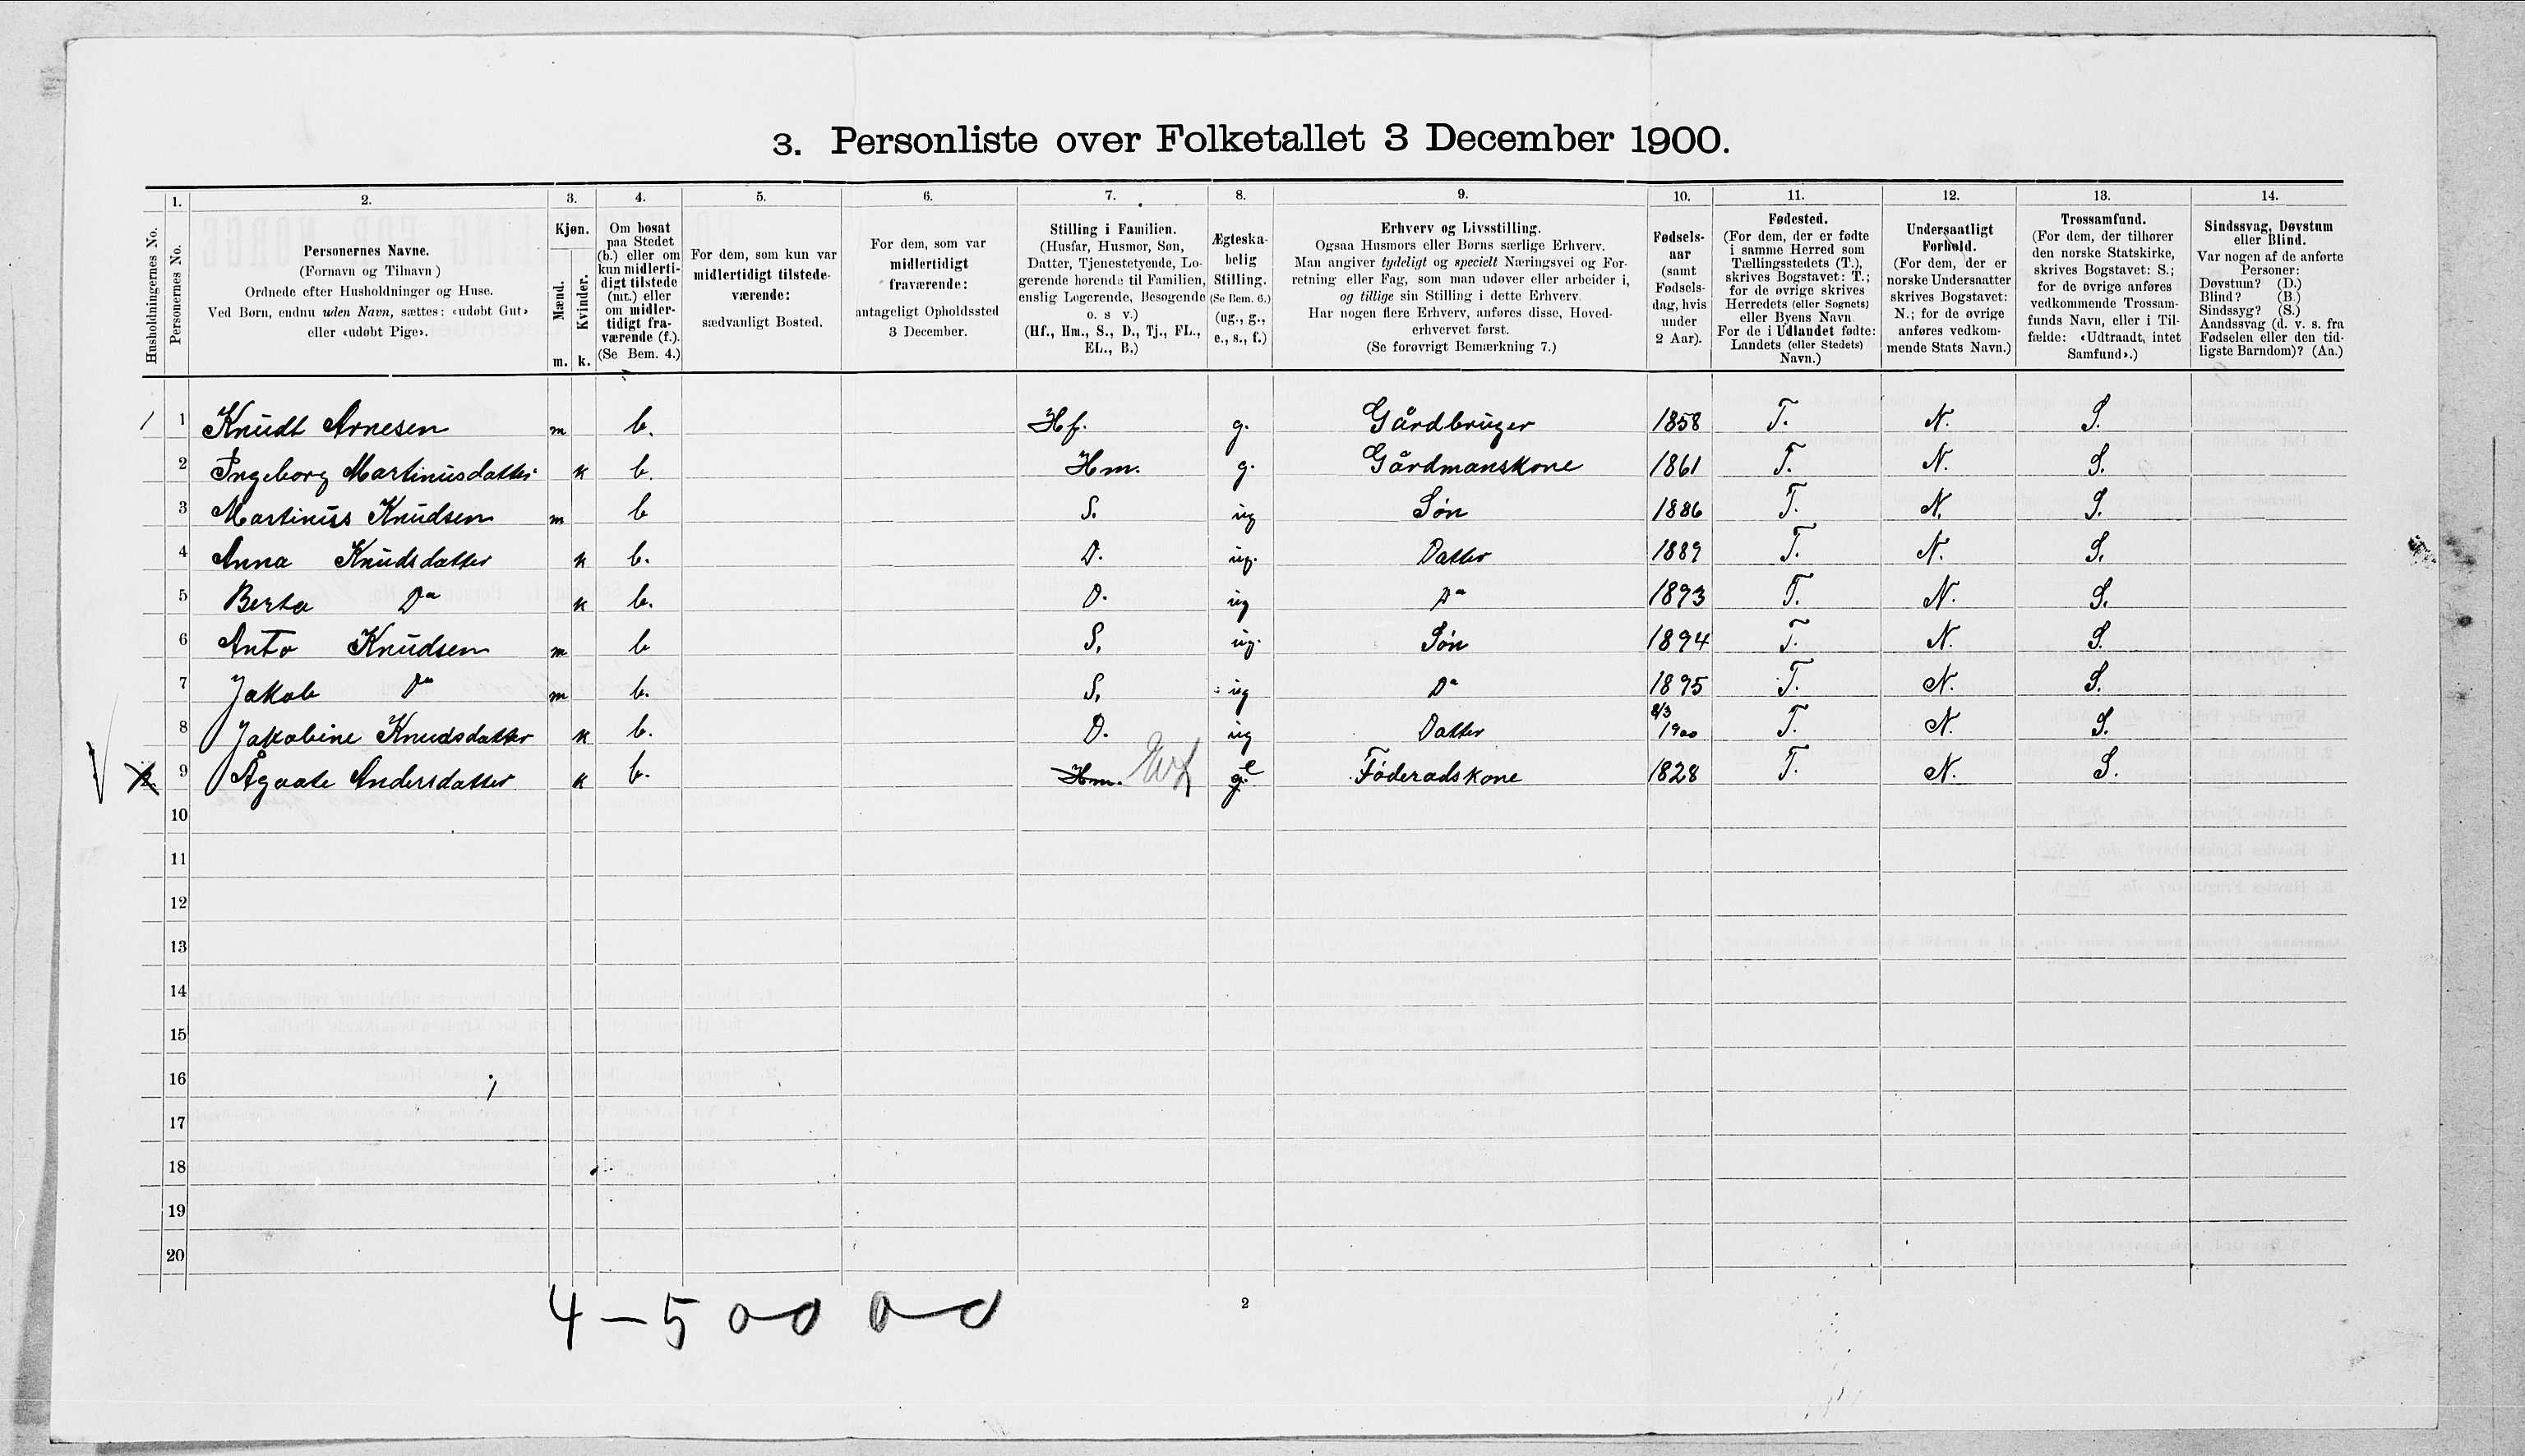 3. Personliste over Folketallet 3 December 1900.
1. 2. 3. 4. 5. 6. 7. 8. 9. 10. 11. 12. 13. 14.
Husholdningernes No.
Personernes No.
Personernes Navne.
(Fornavn og Tilnavn)
Ordnede efter Husholdninger og Huse.
Ved Børn, endnu uden Navn, sættes: «udøbt Gut»
eller «udøbt Pige».
Kjøn.
Mænd.
Kvinder.
m. k.
Om bosat
paa Stedet
(b.) eller om
kun midlerti-
digt tilstede
(mt.) eller
om midler-
tidigt fra-
værende (f.).
(Se Bem. 4.)
For dem, som kun var
midlertidigt tilstede-
værende:
sædvanligt Bosted.
For dem, som var
midlertidigt
fraværende:
antageligt Opholdssted
3 December.
Stilling i Familien.
(Husfar, Husmor, Søn,
Datter, Tjenestetyende, Lo-
gerende hørende til Familien,
enslig Logerende, Besøgende
o. s v.)
(Hf., Hm., S., D., Tj., FL.,
EL., B.)
Ægteska-
belig
Stilling.
(Se Bem. 6.)
(ug., g.,
e., s., f.)
Erhverv og Livsstilling.
Ogsaa Husmors eller Børns særlige Erhverv.
Man angiver tydeligt og specielt Næringsvei og For-
retning eller Fag, som man udøver eller arbeider i,
og tillige sin Stilling i dette Erhverv.
Har nogen flere Erhverv, anføres disse, Hoved-
erhvervet først.
(Se forøvrigt Bemærkning 7.)
Fødsels-
aar
(samt
Fødsels-
dag, hvis
under
2 Aar).
Fødested.
(For dem, der er fødte
i samme Herred som
Tællingsstedets (T.),
skrives Bogstavet: T.;
for de øvrige skrives
Herredets (eller Sognets)
eller Byens Navn.
For de i Udlandet fødte:
Landets (eller Stedets)
Navn.)
Undersaatligt
Forhold.
(For dem, der er
norske Undersaatter
skrives Bogstavet:
N.; for de øvrige
anføres vedkom-
mende Stats Navn.)
Trossamfund.
(For dem, der tilhører
den norske Statskirke,
skrives Bogstavet: S.;
for de øvrige anføres
vedkommende Trossam-
funds Navn, eller i Til-
fælde: «Udtraadt, intet
Samfund».)
Sindssvag, Døvstum
eller Blind.
Var nogen af de anførte
Personer:
Døvstum? (D.)
Blind? (B.)
Sindssyg? (S.)
Aandssvag (d. v. s. fra
Fødselen eller den tid-
ligste Barndom)? (Aa.)
1 1 Knudt Arnesen m b. Hf. g. Gårdbruger 1858 T. N. S.
2 Ingeborg Martinusdatter k b. Hm. g. Gårdmanskone 1861 T. N. S.
3 Martinus Knudsen m b S. ug Søn 1886 T. N. S.
4 Anna Knudsdatter k b. D. ug. Datter 1889 T. N. S.
5 Berta Do k b. D. ug Do 1893 T. N. S.
6 Anto Knudsen m b S. ug. Søn 1894 T. N. S.
7 Jakob Do m b. S. ug Do 1895 T. N. S.
8 Jakobine Knudsdatter k b. D. ug Datter 8/3 1900 T. N. S.
2 9 Ågaate Andersdatter k b. Hm. g. e Föderadskone 1828 T. N. S.
10
11
12
13
14
15
16
17
18
19
20
4 - 5 0-0 0-0
2